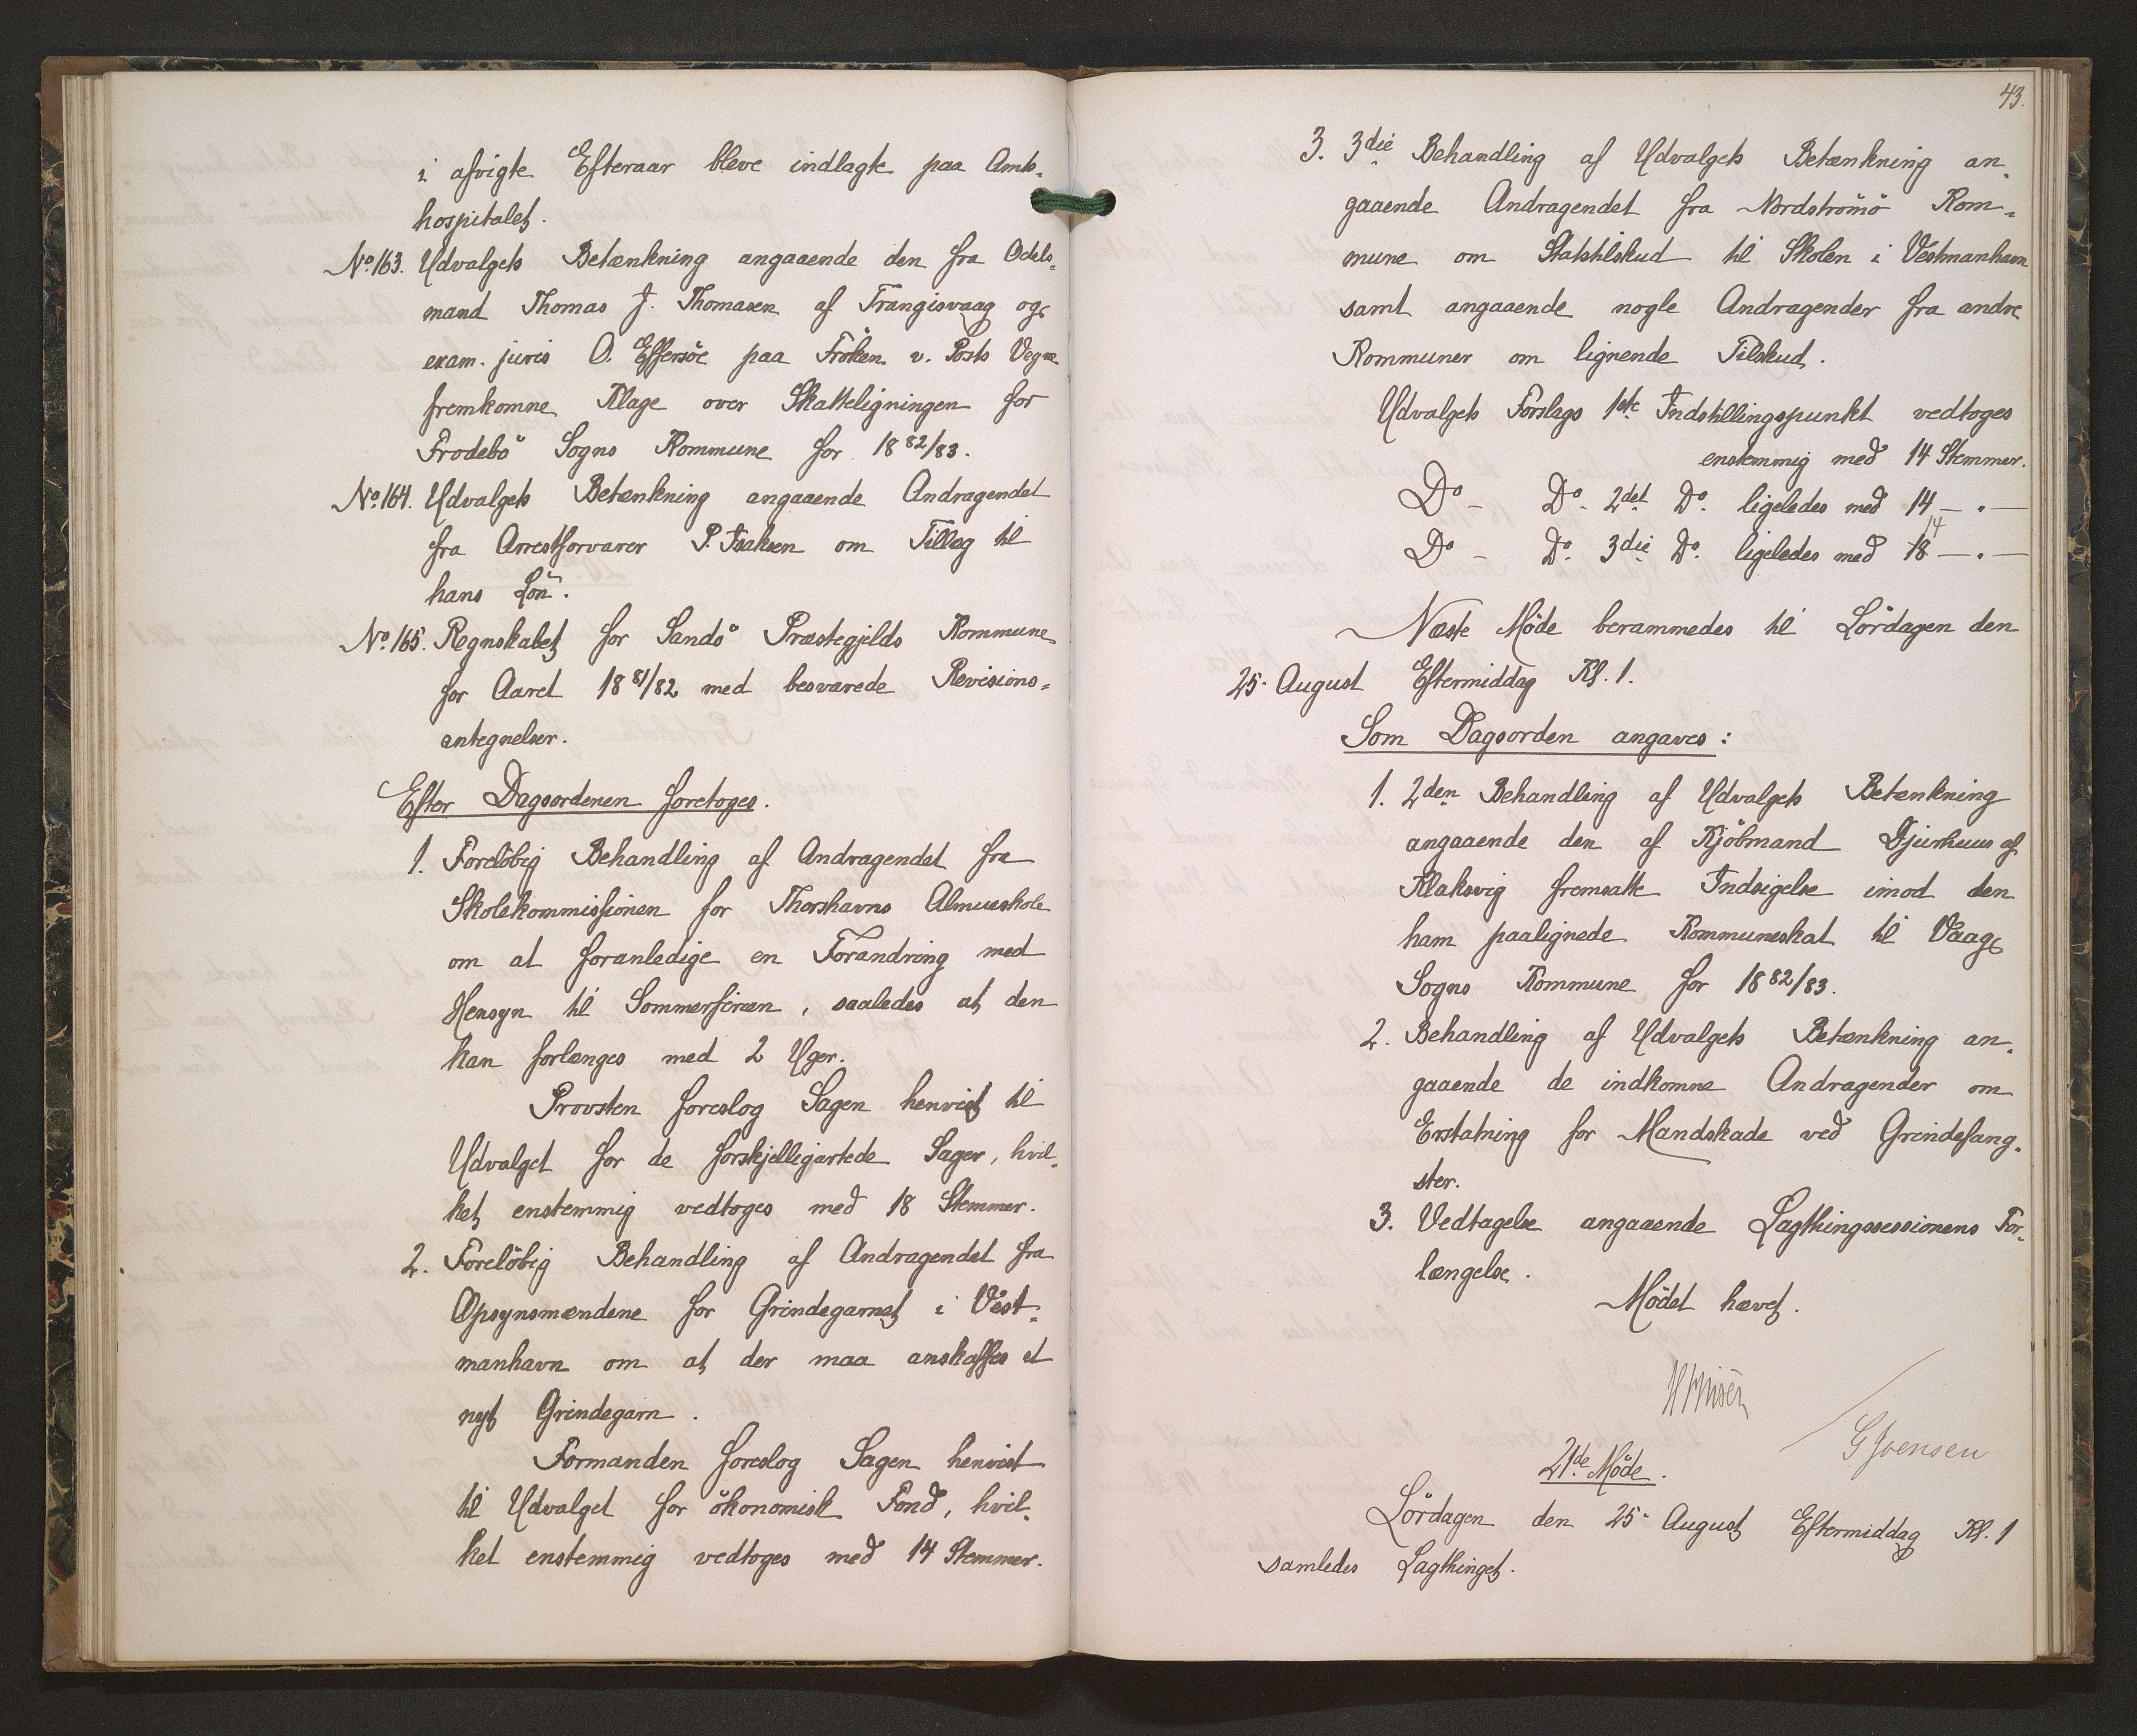 i afvigte Efteraar bleve indlagte paa Amts-
hospitalet.
No. 163. Udvalgets Betænkning angaaende den fra Odels-
mand Thomas J. Thomasen af Trangisvaag og
exam. juris O. Effersöe paa Fröken v. Posts Vegne
fremkomne Klage over Skatteligningen for
Frodebö Sogns Kommune for 1882/83.
No. 164. Udvalgets Betænkning angaaende Andragendet
fra Arrestforvarer P. Isaksen om Tillæg til
hans Lön.
No. 165. Regnskabet for Sandö Præstegjelds Kommune
for Aaret 1881/82 med besvarede Revisions-
antegnelser.
Efter Dagsordenen foretoges.
1. Forelöbig Behandling af Andragendet fra
Skolekommissionen for Thorshavns Almueskole
om at foranledige en Forandring med
Hensyn til Sommerferien, saaledes at den
kan forlænges med 2 Uger.
Provsten foreslog Sagen henvist til
Udvalget for de forskjelligartede Sager, hvil-
ket enstemmig vedtoges med 18 Stemmer.
2. Forelöbig Behandling af Andragendet fra
Opsynsmændene for Grindegarnet i Vest-
manhavn om at der maa anskaffes et
nyt Grindegarn.
Formanden foreslog Sagen henvist
til Udvalget for ökonomisk Fond, hvil-
ket enstemmig vedtoges med 14 Stemmer.
43.
3. 3die Behandling af Udvalgets Betænkning an-
gaaende Andragendet fra Nordströmö Kom-
mune om Statstilskud til Skolen i Vestmanhavn
samt angaaende nogle Andragender fra andre
Kommuner om lignende Tilskud.
Udvalgets Forslags 1ste Indstillingspunkt vedtoges
enstemmig med 14 Stemmer.
Do - Do. 2det Do. ligeledes med 14 — . —
14
Do - Do. 3die Do. ligeledes med 18 — . —
Næste Möde berammedes til Lördagen den
25. August Eftermiddag Kl. 1.
Som Dagsorden angaves:
1. 2den Behandling af Udvalgets Betænkning
angaaende den af Kjöbmand Djurhuus af
Klaksvig fremsatte Indsigelse imod den
ham paalignede Kommuneskat til Vaags
Sogns Kommune for 1882/83.
2. Behandling af Udvalgets Betænkning an-
gaaende de indkomne Andragender om
Erstatning for Mandskade ved Grindefang-
ster.
3. Vedtagelse angaaende Lagthingssessionens For-
længelse.
Mödet hævet.
G Joensen
21de Möde.
Lördagen den 25. August Eftermiddag Kl. 1
samledes Lagthinget.